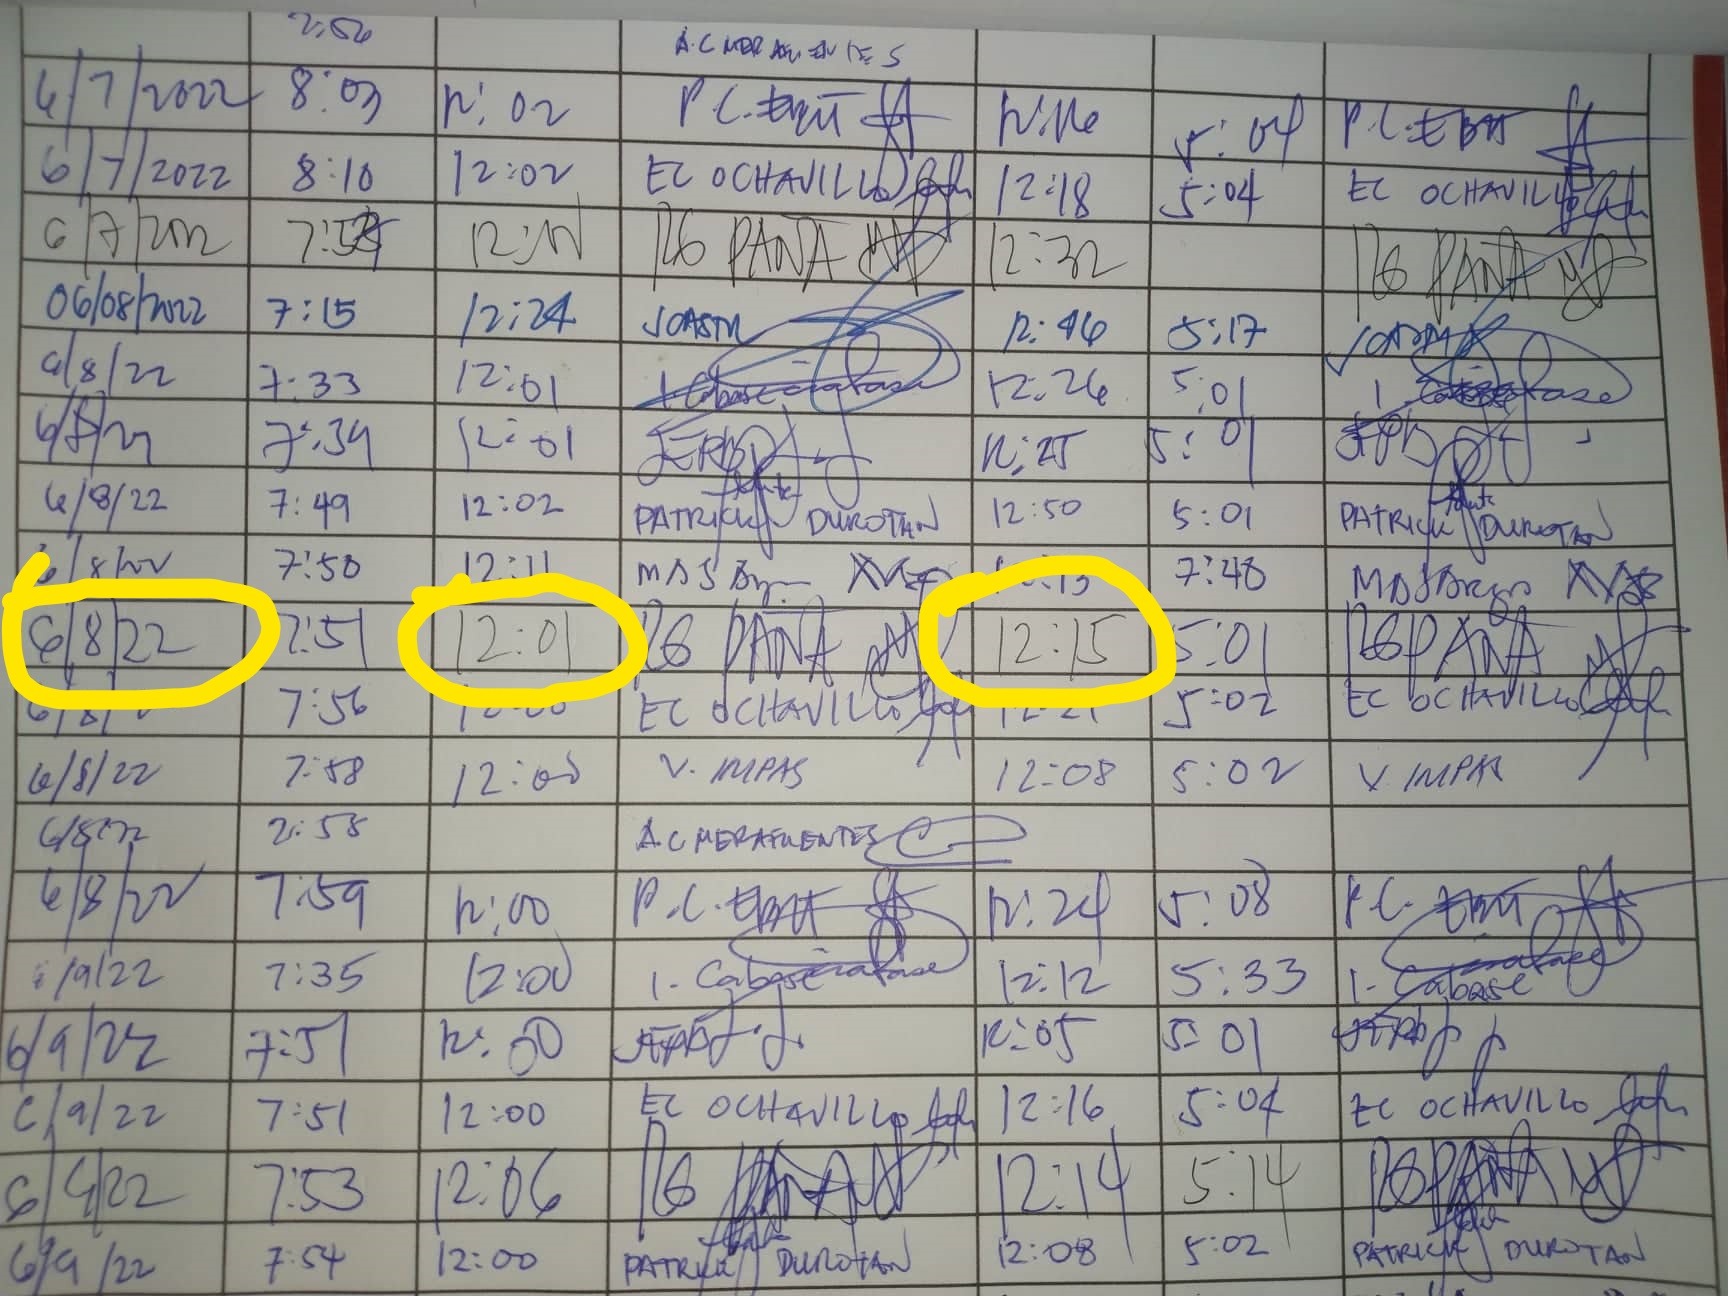 2:56 A.C MERAFUENTES
6/7/2022 8:03 12:02 P.C. 12:16 5:04 P.C.
6/7/2022 8:10 12:02 EC OCHAVILLO 12:18 5:04 EC OCHAVILLO
6/7/2022 RG PANA 12:32 RG PANA
06/08/2022 7:15 12:24 12:46 5:17
6/8/22 7:33 12:01 12:26 5:01
6/8/22 7:39 12:01 12:25 5:01
6/8/22 7:49 12:02 PATRICK DUROTAN 12:50 5:01 PATRICK DUROTAN
6/8/22 7:50 12:11 12:13 7:48
6/8/22 7:51 12:01 RG PANA 12:15 5:01 RG PANA
7:56 EC OCHAVILLO 12:21 5:02 EC OCHAVILLO
6/8/22 7:58 12:00 V. IMPAS 12:08 5:02 V. IMPAS
6/8/22 2:58 A.C MERAFUENTES
6/8/22 7:59 12:00 P.C. 12:24 5:08 P.C.
/9/22 7:35 12:00 12:12 5:33
6/9/22 7:51 12:00 12:05 5:01
6/9/22 7:51 12:00 EC OCHAVILLO 12:16 5:04 EC OCHAVILLO
6/9/22 7:53 12:06 RG PANA 12:14 5:14 RG PANA
6/9/22 7:54 12:00 PATRICK DUROTAN 12:08 5:02 PATRICK DUROTAN